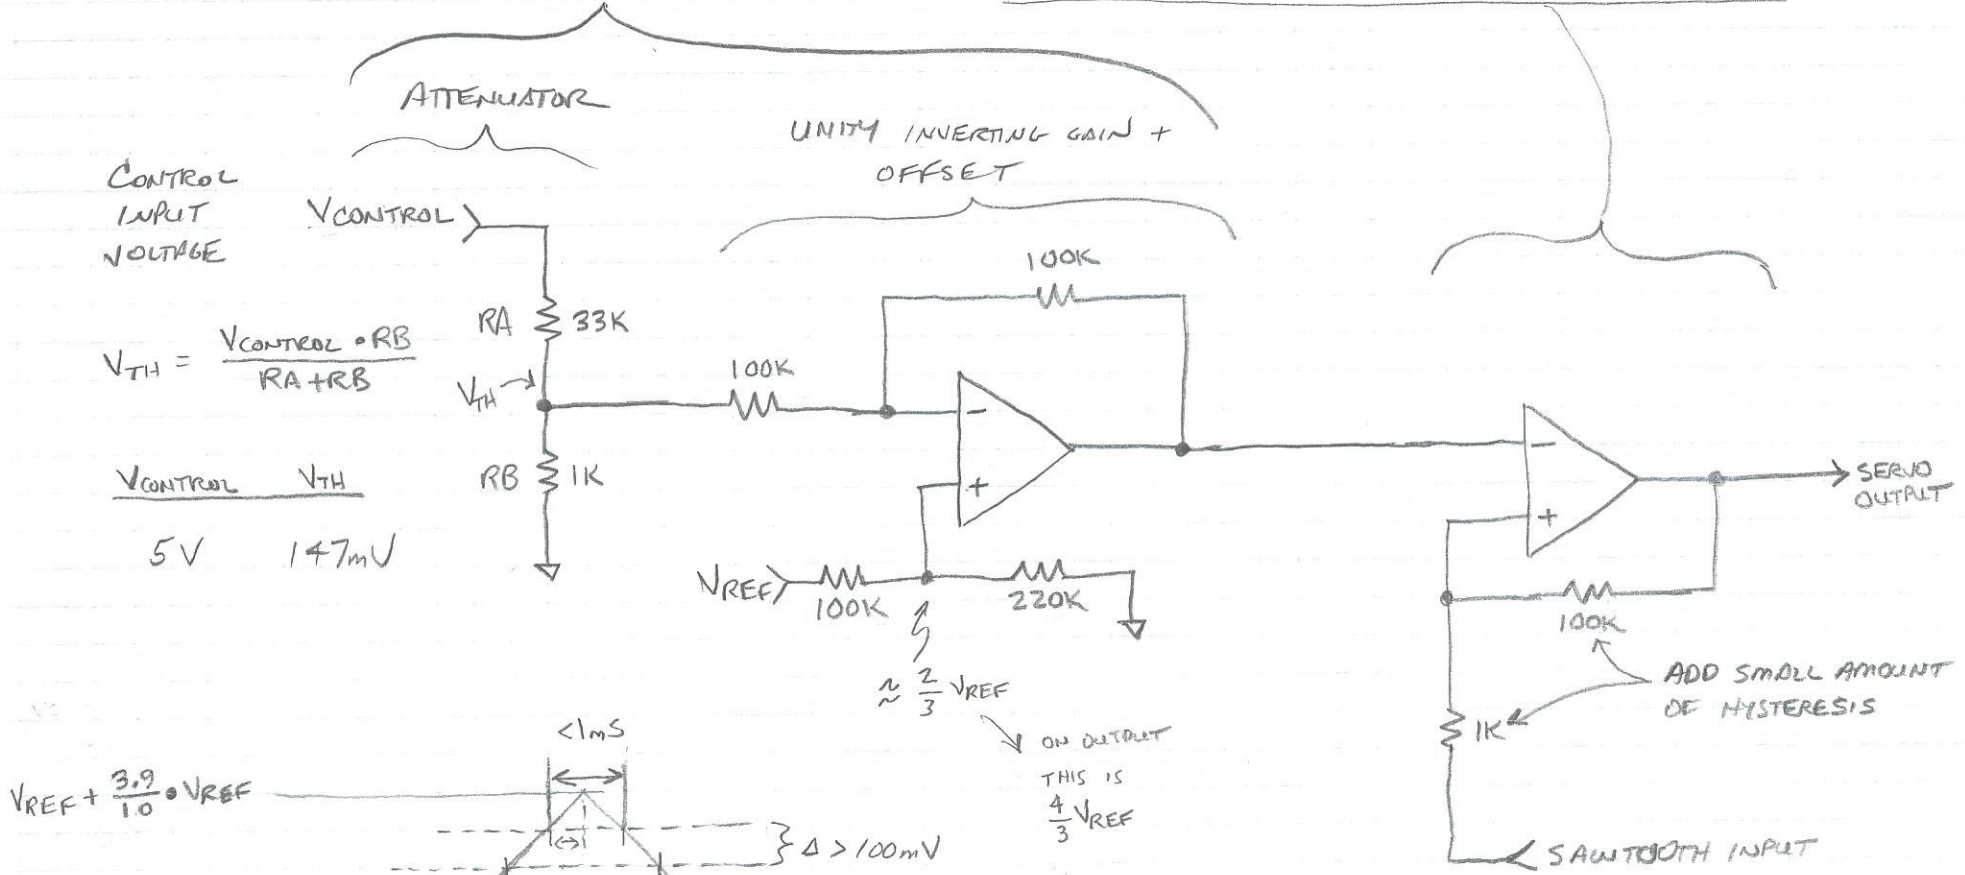 ATTENUATOR
UNITY INVERTING GAIN +
OFFSET
CONTROL
INPUT
VOLTAGE
VCONTROL
VTH = VCONTROL • RB / RA + RB
VCONTROL VTH
5V 147mV
RA 33K
VTH
RB 1K
100K
100K
-
+
VREF
100K
220K
≈ 2/3 VREF
ON OUTPUT
THIS IS
4/3 VREF
-
+
SERVO
OUTPUT
100K
ADD SMALL AMOUNT
OF HYSTERESIS
1K
SAWTOOTH INPUT
<1mS
VREF + 3.9/1.0 • VREF
Δ > 100mV